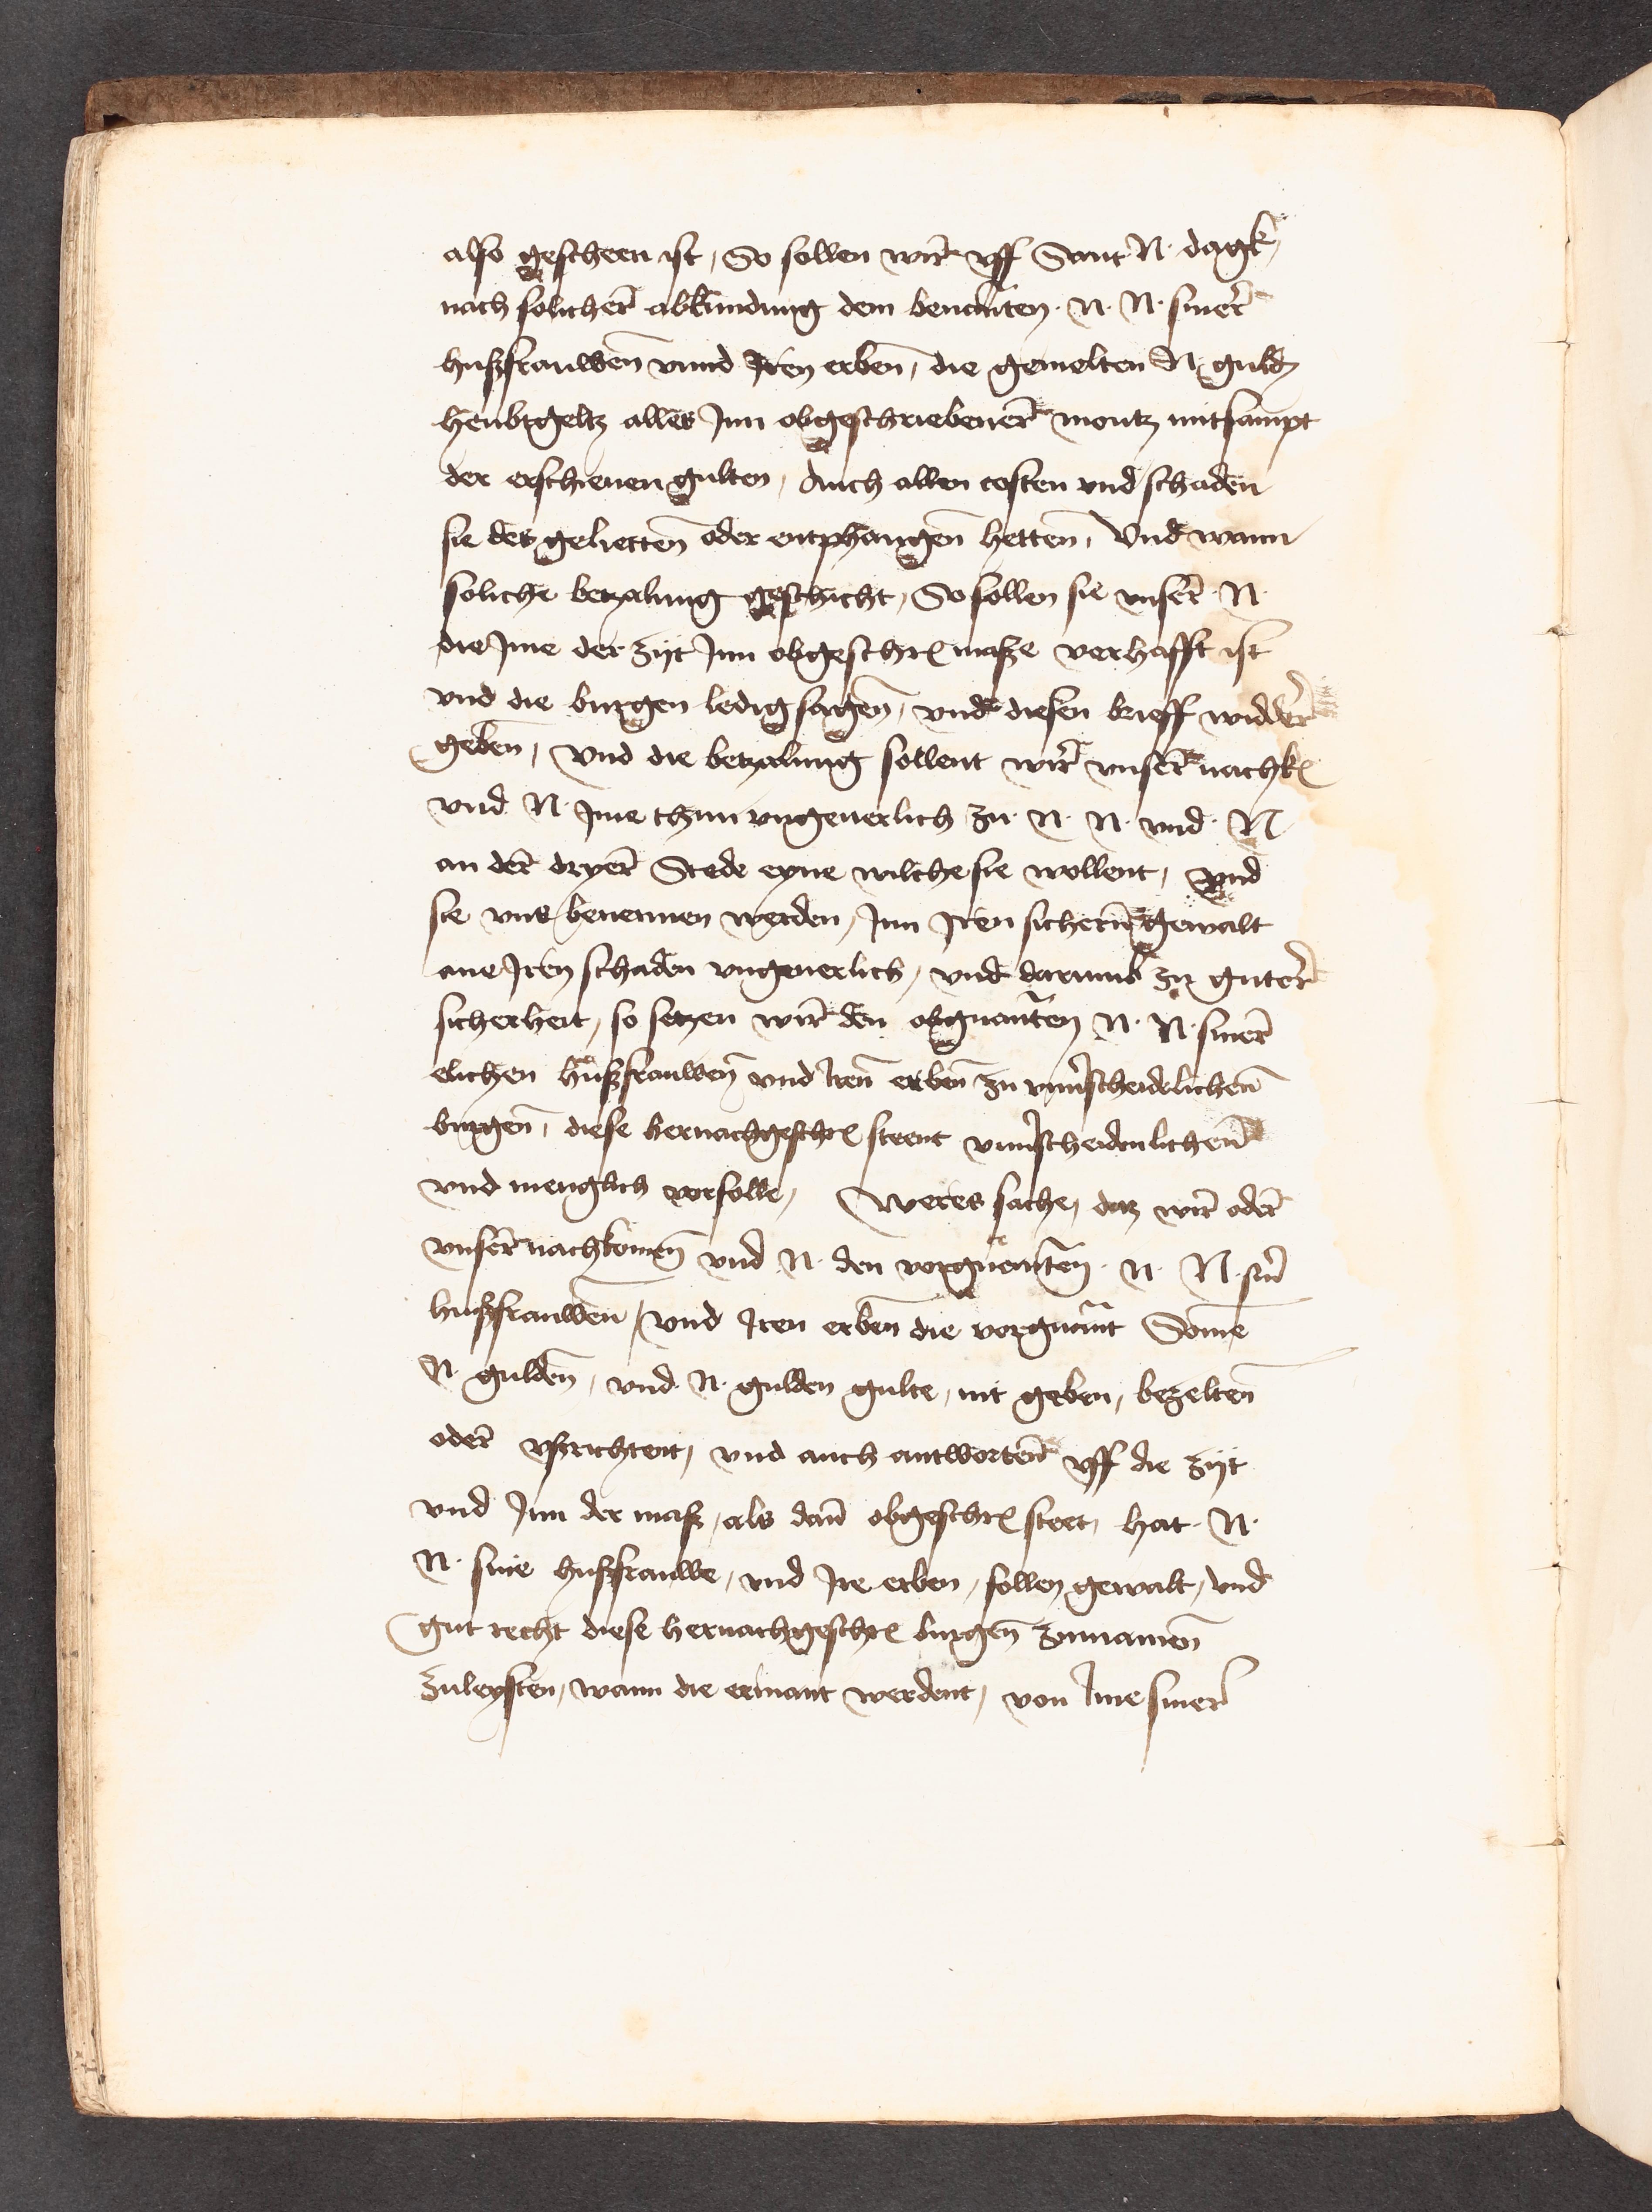 also gescheen ist, So sollen wir uff Sant N. dagk,
nach solicher abkundung dem benanten N. N. siner
hußfrauwen unnd Iren erben, die gemelten N. guld
heubtgeltz alles Inn obgeschriebener montz mitsampt
der erschienen gulten, Auch allen costen und schaden
sie des gelietten oder entphangen hetten, Und wann
soliche betzalung geschicht, So sollen sie unser N.
die Ime der zijt Inn obgeschr maße verhafft ist
und die burgen ledig sagen, und diesen brieff widder
geben, Und die betzalung sollent wir unser nachk
und N. Ime thun ungeuerlich zu N. N. und N
an der dryer Stede eyne wilche sie wollent, und
sie uns benennen werden, Inn Iren sichern gewalt
ane Iren schaden ungeuerlich, und darumb zu guter
sicherheit, so setzen wir den obgnanten N. N. siner
elichen hußfrauwen und Iren erben zu unuerscheidelichen
burgen, diese hernachgeschr steent unuerscheidenlichen
und menglich vorsolle, Weres sache, daz wir oder
unser nachkomen und N. den vorgnanten N. N. siner
hußfrauwen, und Iren erben die vorgnant Some
N. gulden, und N. gulden gulte, nit geben, bezelten
oder ußrichtent, und auch antworten uff die zijt
und Inn der maß, als dann obgeschr steet, hat N.
N. sine hußfrauwe, und Ire erben, sollen gewalt, und
gut recht diese hernachgeschr burgen zumanen
zuleysten, wann die ermant werdent, von Ime siner